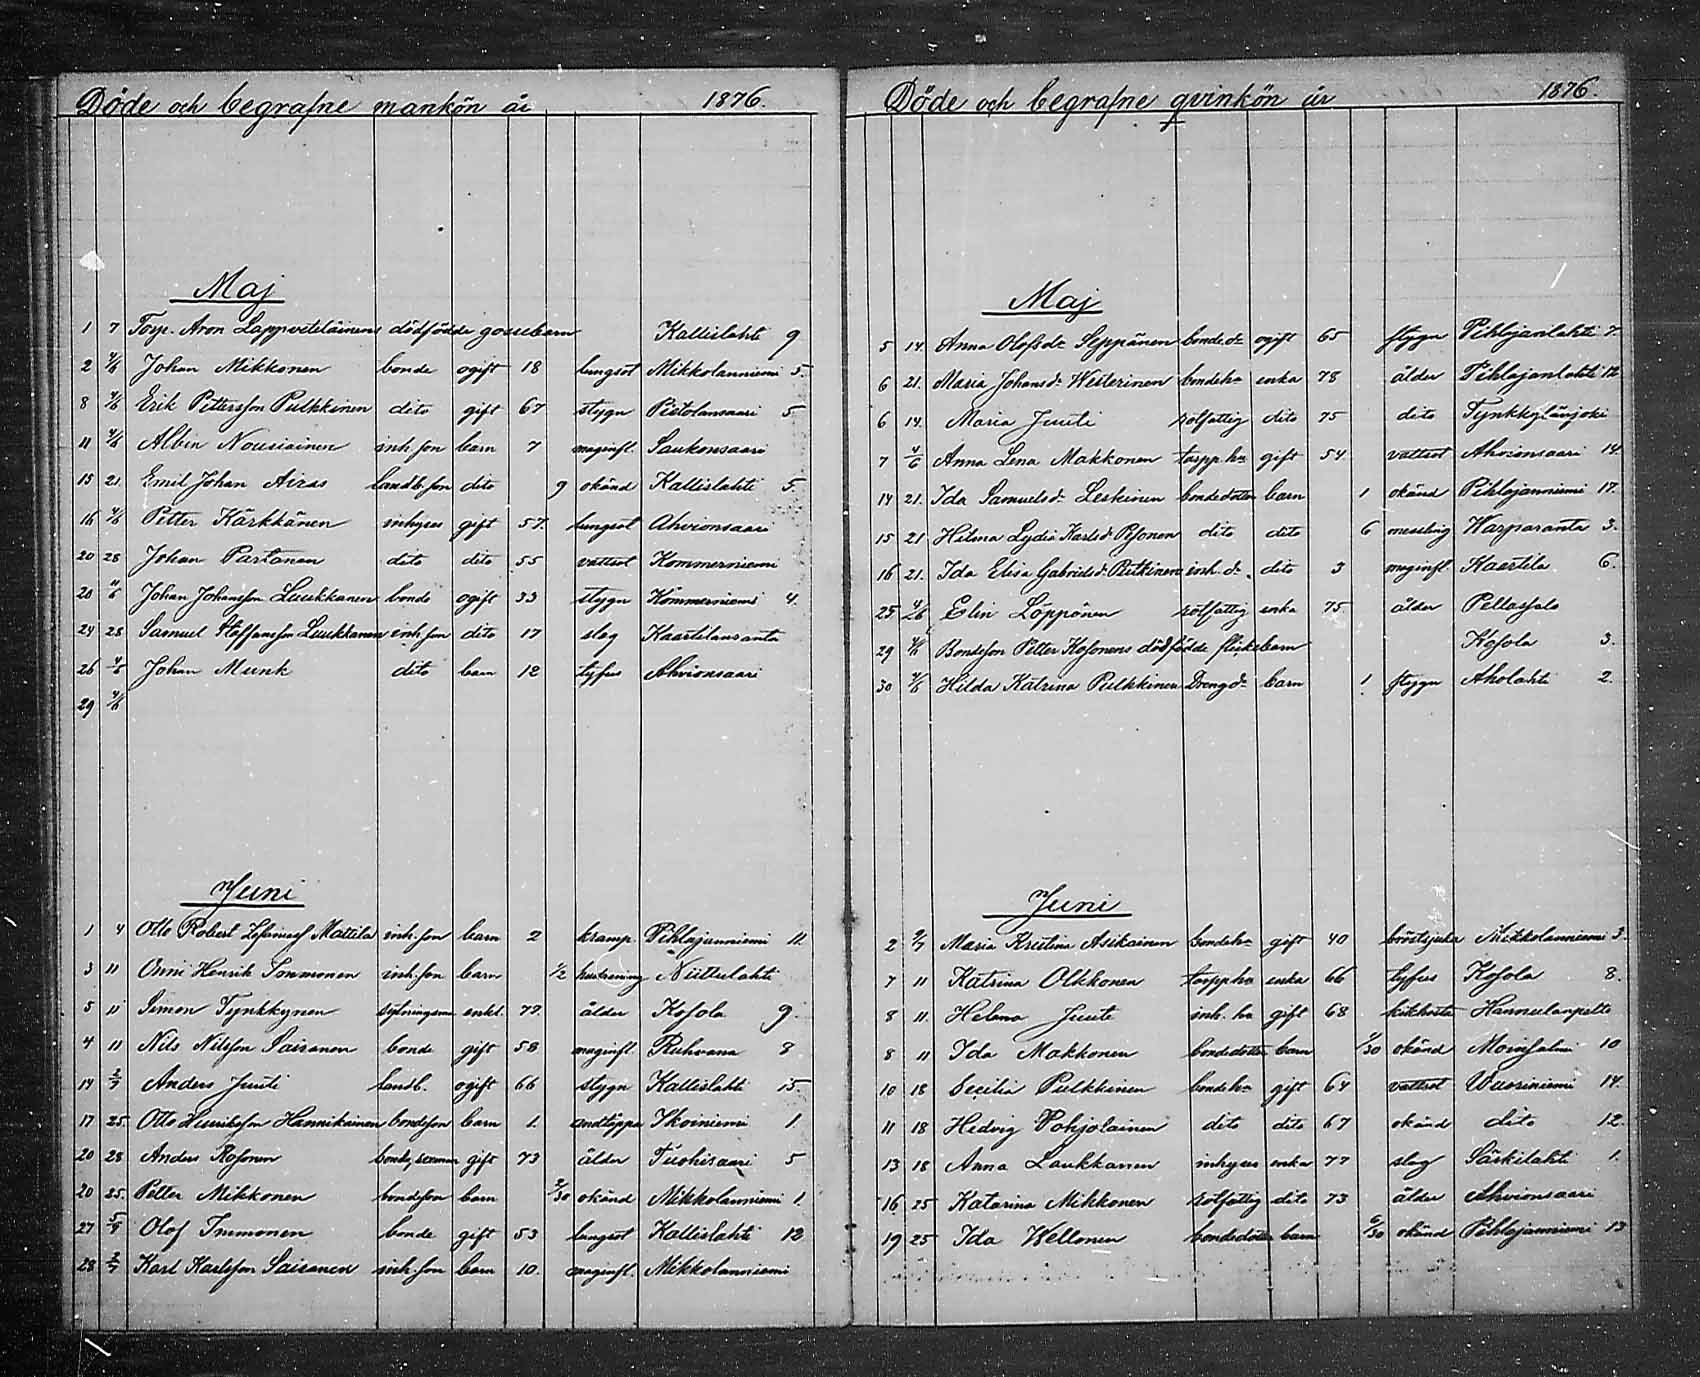 Döde och begrafne mankön år 1876.
Maj
1 7 Torp. Aron Lappveteläinens dödfödde gossebarn Kallislahti 9
2 4/6 Johan Mikkonen bonde ogift 18 lungsot Mikkolanniemi 5.
8 4/6 Erik Pettersson Pulkkinen dito gift 67 stygn Pietolansaari 5
11 4/6 Albin Nousiainen inh. son barn 7 maginfl. Saukonsaari
15 21 Emil Johan Airas landb. son dito 9 okänd Kallislahti 5.
16 4/6 Petter Kärkkänen inhyses gift 57. lungsot Ahvionsaari
20 28 Johan Partanen dito dito 55 vattsot Kommerniemi
20 11/6 Johan Johansson Luukkanen bonde ogift 33 stygn Kommerniemi 4.
24 28 Samuel Staffansson Luukkanen inh. son dito 17 slag Kaartilanranta
26 4/6 Johan Munk dito barn 12 tyfus Ahvionsaari
29 4/6
Juni
1 4 Otto Robert Mattila inh. son barn 2 kramp Pihlajanniemi 11.
3 11 Onni Henrik Immonen inh. son barn 1/2 Niittulahti
5 11 Simon Tynkkynen sytningsm enkl. 77. ålder Kosola 9.
4 11 Nils Nilsson Saisanen bonde gift 58 maginfl. Ruhvana 8
14 2/7 Anders Juuti landb. ogift 66 stygn Kallislahti 15
17 25. Otto Henriksson Hannikainen bondeson barn 1. andtäppa Ikoiniemi 1.
20 28 Anders Kosonen gift 73 ålder Tuohisaari 5
20 25. Petter Mikkonen bondeson barn 2/30 okänd Mikkolanniemi 1.
27 5/7 Olof Immonen bonde gift 53 lungsot Kallislahti 12
28 2/7 Karl Karlsson Saisanen inh. son barn 10. maginfl. Mikkolanniemi
Döde och begrafne qvinkön år 1876.
Maj
5 14. Anna Olofsdr Seppänen bonde dr ogift 65 stygn Pihlajanlahti 7.
6 21. Maria Johansdr Westerinen bondehu enka 78 ålder Pihlajanlahti 12
6 14. Maria Juuti rotfattig dito 75 dito Tynkkylänjoki
7 4/6 Anna Lena Makkonen torpp. hu gift 54 vattsot Ahvionsaari 14.
14 21. Ida Samuelsdr Leskinen bondedotter barn 1 okänd Pihlajanniemi 17.
15 21 Hilma Lydia Karlsdr dito dito 6 messling Harparanta 3.
16 21. Ida Elisa Gabrielsdr Rutkinen inh. dr. dito 3 maginfl. Kaartila 6.
25 4/6 Elin Löppönen rotfattig enka 75 ålder Pellossalo
29 4/6 Bondeson Petter Kosonens dödfödde flickebarn Kosola 3.
30 4/6 Hilda Katrina Pulkkinen Drengdr barn 1 stygn Aholahti 2.
Juni
2 2/7 Maria Kristina Asikainen bondehu gift 40 bröstsjuka Mikkolanniemi 3.
7 11 Katrina Olkkonen torpp hu enka 66 tyfus Kosola 8.
8 11. Helena Juute inh. hu gift 68 kikhosta Hannulanpelto
8 11 Ida Makkonen bondedotter barn /30 okänd Moinsalmi 10
10 18 Cecilia Pulkkinen bondehu gift 64 vattsot Wuoriniemi 14.
11 18 Hedvig Pohjolainen dito dito 67 okänd dito 12.
13 18 Anna Laukkanen inhyses enka 77 slag Särkilahti 1.
16 25 Katarina Mikkonen rotfattig dito 73 ålder Ahvionsaari
19 25 Ida Wellonen bondedotter barn 6/30 okänd Pihlajanniemi 13